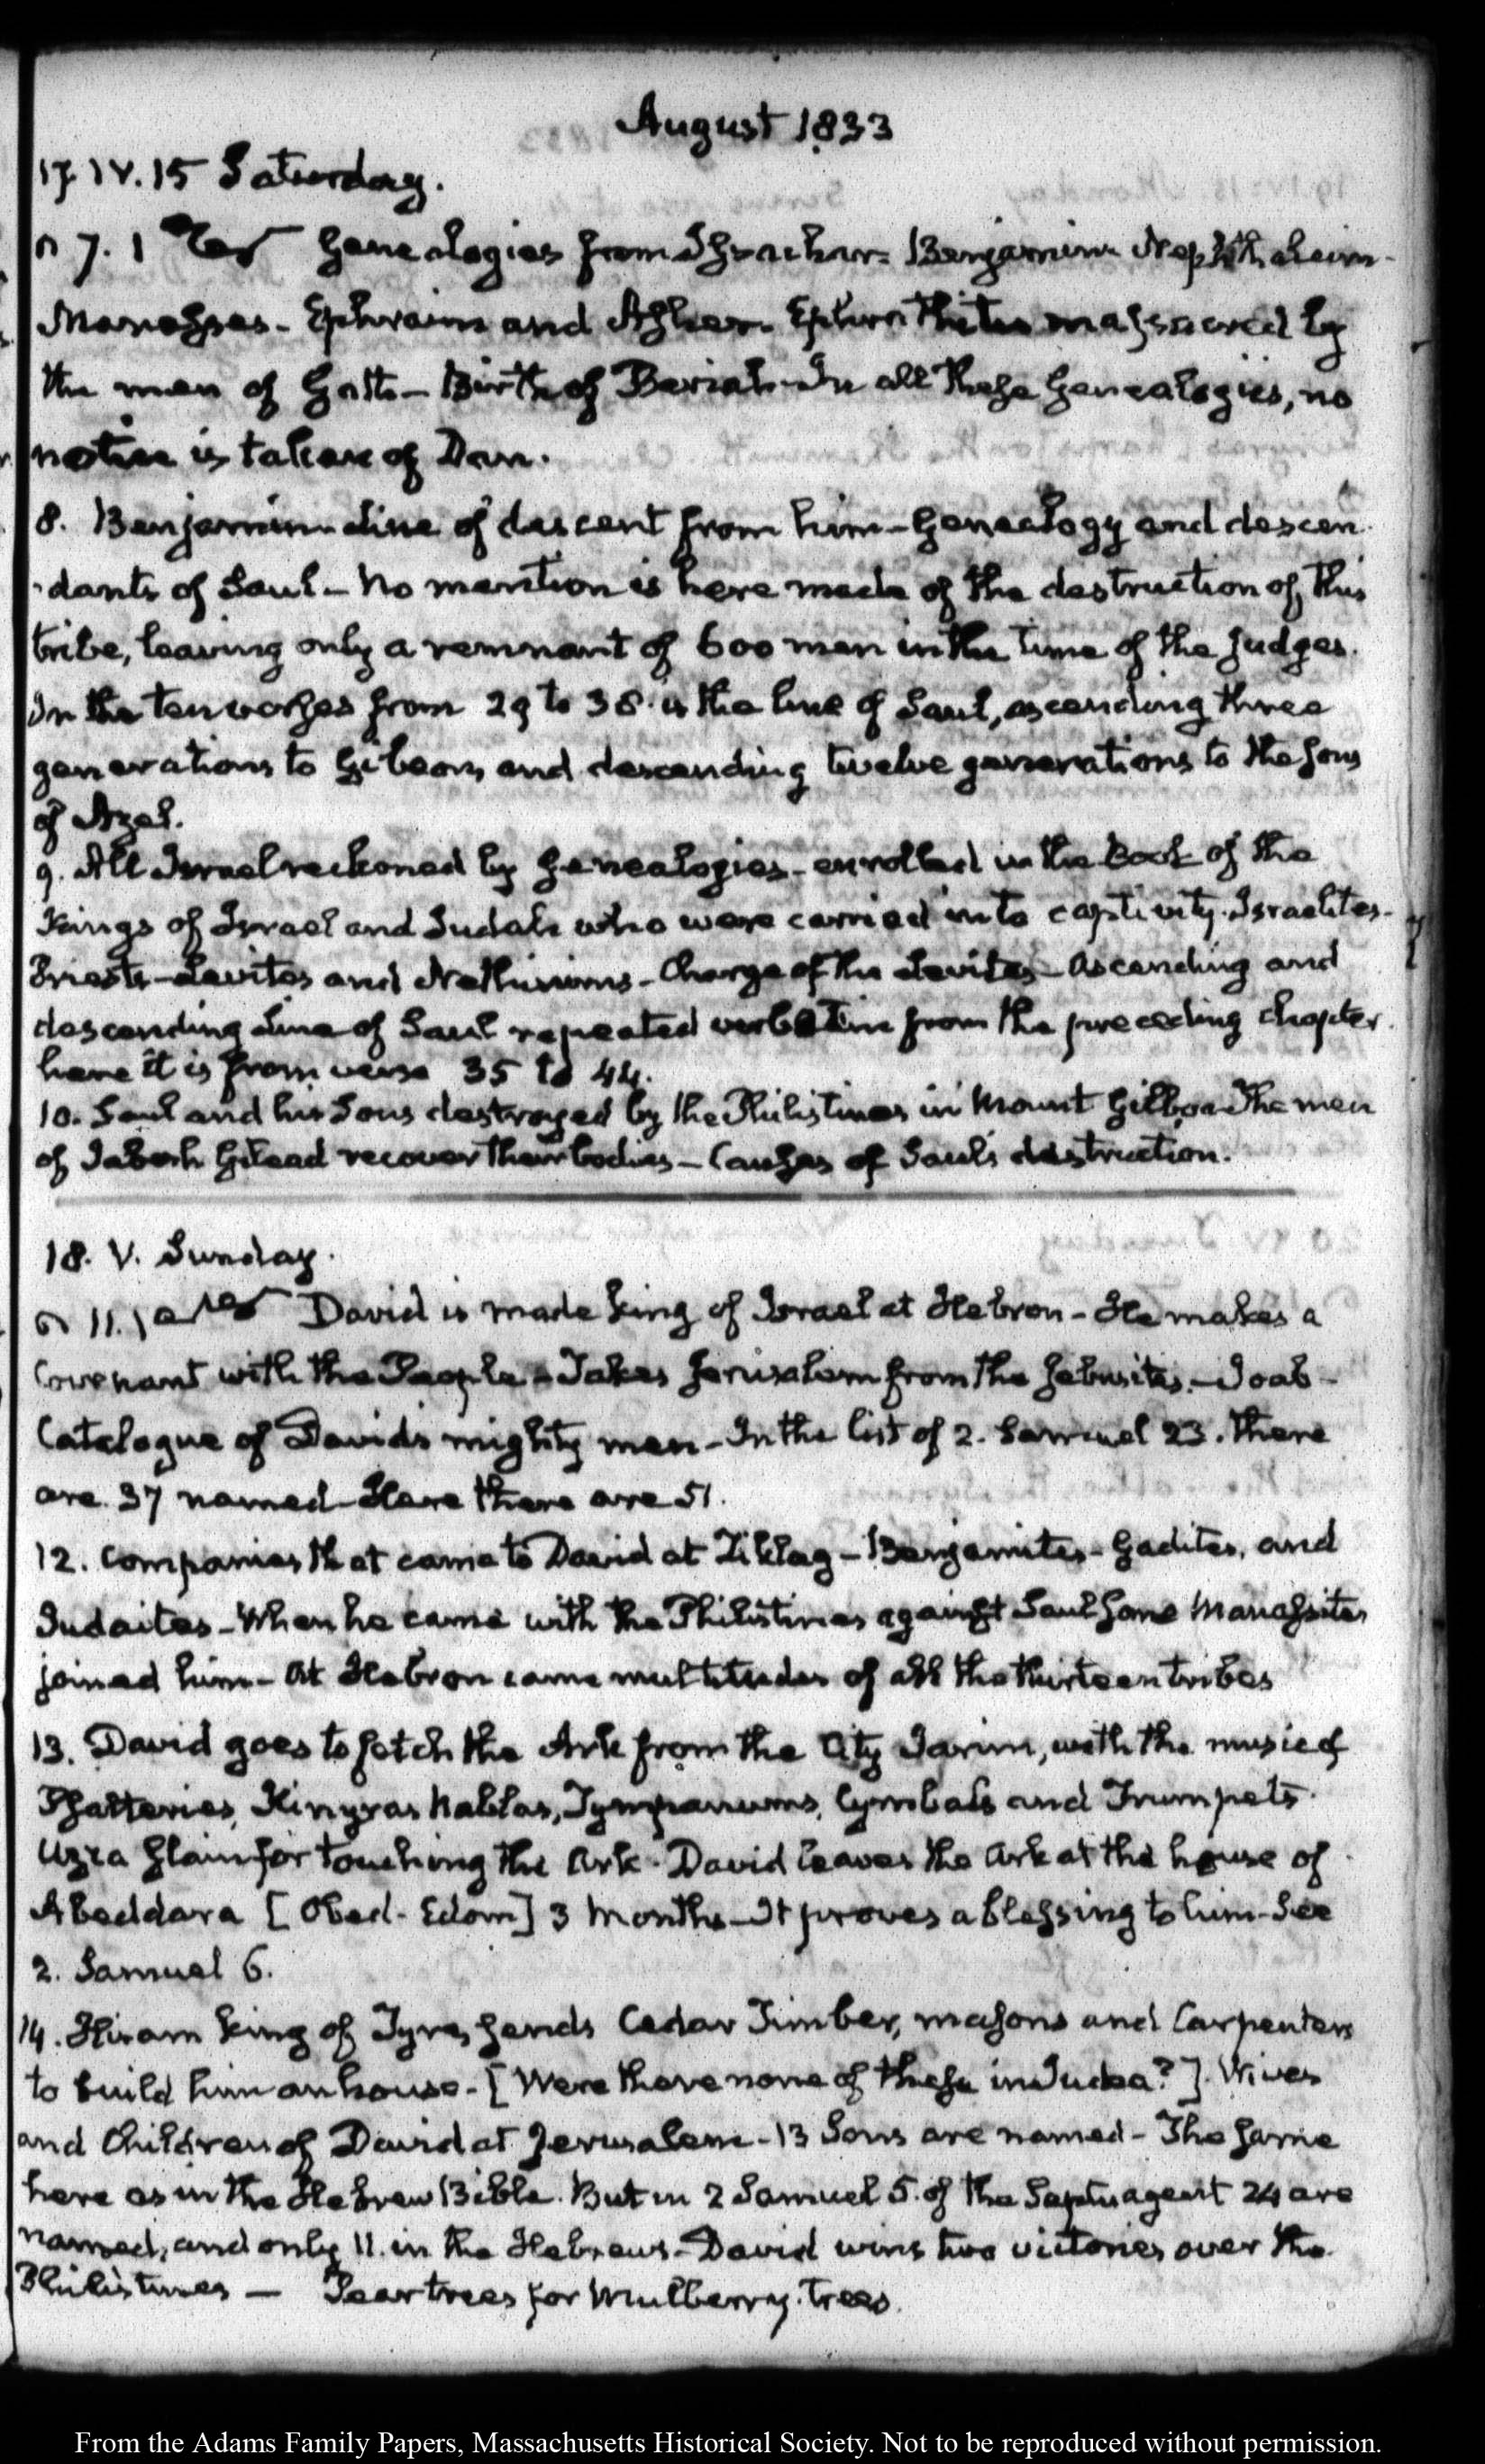 August 1833
17. IV. 15 Saturday.
7. 1 Genealogies from Issachar- Benjamin Nephthaleim-
Manasses- Ephraim and Asher. Ephrathites massacred by
the men of Gath- Birth of Beriah- In all these Genealogies, no
notice is taken of Dan.
8. Benjamin- Line of descent from him- Genealogy and descen-
-dants of Saul- No mention is here made of the destruction of this
tribe, leaving only a remnant of 600 men in the time of the Judges.
In the ten verses from 29 to 38. is the line of Saul, ascending three
generations to Gibeon, and descending twelve generations to the Sons
of Azel.
9. All Israel reckoned by Genealogies- enrolled in the Book of the
Kings of Israel and Judah who were carried into captivity. Israelites-
Priests- Levites and Nethinims- Charge of the Levites- Ascending and
descending Line of Saul repeated verbatim from the preceding chapter.
here it is from verse 35 to 44.
10. Saul and his Sons destroyed by the Philistines in Mount Gilboa- The men
of Jabesh Gilead recover their bodies- Causes of Saul's destruction.
18. V. Sunday.
11. 1 David is made King of Israel at Hebron- He makes a
Covenant with the People- Takes Jerusalem from the Jebusites.- Joab-
Catalogue of David's mighty men- In the list of 2. Samuel 23. there
are 37 named- Here there are 51.
12. Companies that came to David at Ziklag- Benjamites- Gadites, and
Judaites- When he came with the Philistines against Saul some Manassites
joined him- At Hebron came multitudes of all the thirteen tribes
13. David goes to fetch the Ark from the City Jarim, with the music of
Psalteries, Kinyras Nablas, Tympanums, Cymbals and Trumpets.
Uzza slain for touching the Ark. David leaves the Ark at the house of
Abeddara [Obed-Edom] 3 Months- It proves a blessing to him- See
2. Samuel 6.
14. Hiram King of Tyre, sends Cedar Timber, masons and Carpenters
to build him an house- [Were there none of these in Judea?]. Wives
and Children of David at Jerusalem- 13 Sons are named- The same
here as in the Hebrew Bible. But in 2 Samuel 5. of the Septuagent 24 are
named, and only 11. in the Hebrews- David wins two victories over the
Philistines — Pear trees for Mulberry. trees.
From the Adams Family Papers, Massachusetts Historical Society. Not to be reproduced without permission.